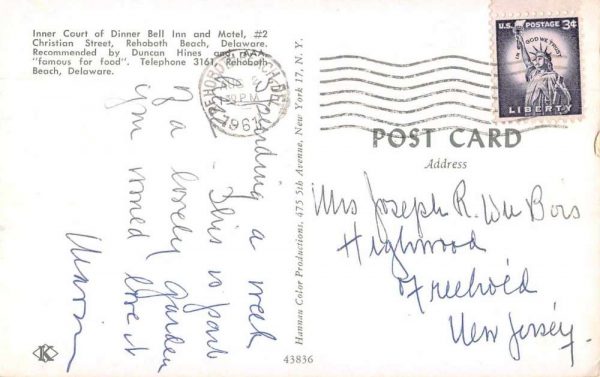 Inner Court of Dinner Bell Inn and Motel, #2
Christian Street, Rehoboth Beach, Delaware.
Recommended by Duncan Hines and AAA
"famous for food". Telephone 3161, Rehoboth
Beach, Delaware.
REHOBOTH BEACH, DEL.
PM
1961
U.S. POSTAGE 3¢
IN GOD WE TRUST
LIBERTY
POST CARD
Address
Mrs Joseph R. Du Bois
Highwood
Freehold
New Jersey.
Spending a week
here. This is part
of a lovely garden
you would love it
Marion
Hannau Color Productions, 475 5th Avenue, New York 17, N. Y.
K
43836